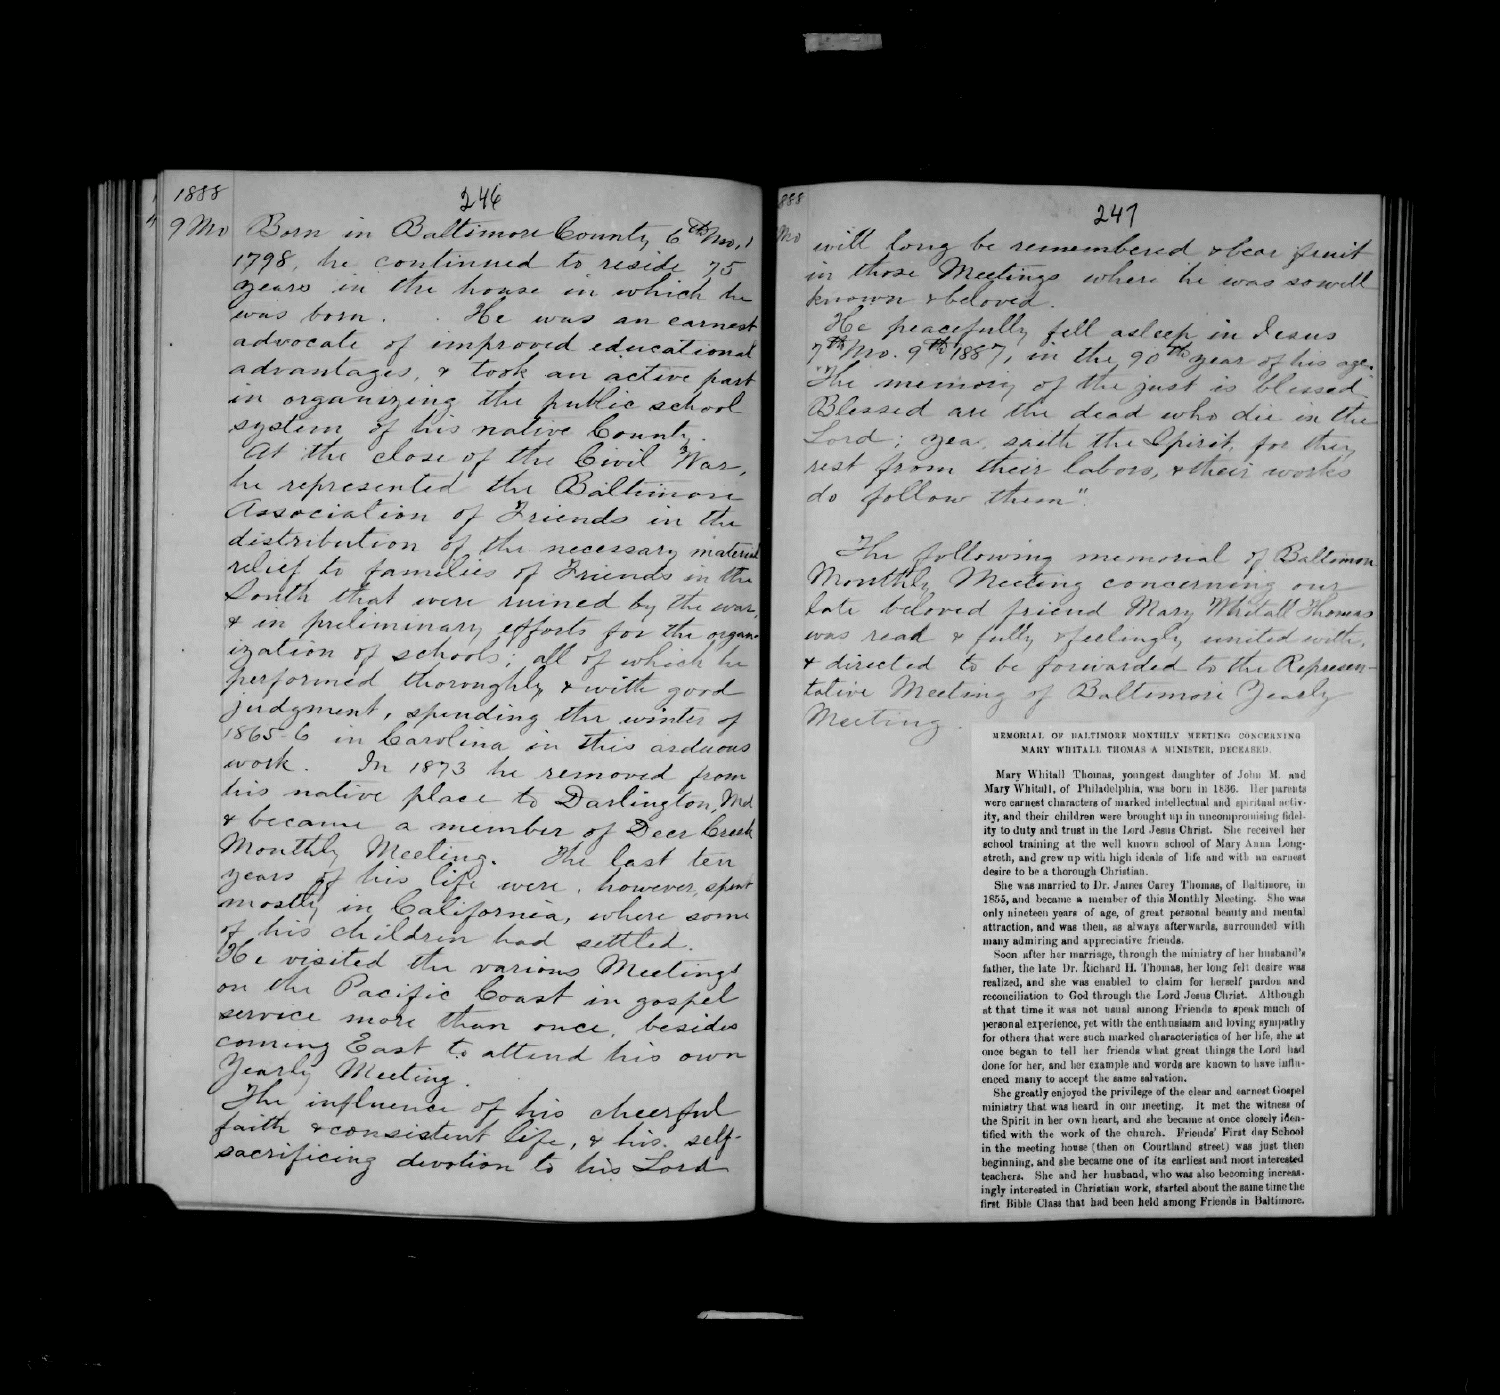 1888
246
9 Mo
Born in Baltimore County 6th Mo. 1
1798, he continued to reside 75
years in the house in which he
was born. He was an earnest
advocate of improved educational
advantages, & took an active part
in organizing the public school
system of his native County.
At the close of the Civil War,
he represented the Baltimore
Association of Friends in the
distribution of the necessary material
relief to families of Friends in the
South that were ruined by the war,
& in preliminary efforts for the organ-
ization of schools; all of which he
performed thoroughly & with good
judgment, spending the winter of
1865-6 in Carolina in this arduous
work. In 1873 he removed from
his native place to Darlington, Md
& became a member of Deer Creek
Monthly Meeting. The last ten
years of his life were, however, spent
mostly in California, where some
of his children had settled.
He visited the various Meetings
on the Pacific Coast in gospel
service more than once, besides
coming East to attend his own
Yearly Meeting.
The influence of his cheerful
faith & consistent life, & his self-
sacrificing devotion to his Lord
888
247
Mo
will long be remembered & bear fruit
in those Meetings where he was so well
known & beloved.
He peacefully fell asleep in Jesus
7th Mo. 9th 1887, in the 90th year of his age.
"The memory of the just is blessed
Blessed are the dead who die in the
Lord; yea, saith the Spirit, for they
rest from their labors, & their works
do follow them".
The following memorial of Baltimore
Monthly Meeting concerning our
late beloved friend Mary Whitall Thomas
was read & fully & feelingly united with,
& directed to be forwarded to the Represen-
tative Meeting of Baltimore Yearly
Meeting.
MEMORIAL OF BALTIMORE MONTHLY MEETING CONCERNING
MARY WHITALL THOMAS A MINISTER, DECEASED.
Mary Whitall Thomas, youngest daughter of John M. and
Mary Whitall, of Philadelphia, was born in 1836. Her parents
were earnest characters of marked intellectual and spiritual activ-
ity, and their children were brought up in uncompromising fidel-
ity to duty and trust in the Lord Jesus Christ. She received her
school training at the well known school of Mary Anna Long-
streth, and grew up with high ideals of life and with an earnest
desire to be a thorough Christian.
She was married to Dr. James Carey Thomas, of Baltimore, in
1855, and became a member of this Monthly Meeting. She was
only nineteen years of age, of great personal beauty and mental
attraction, and was then, as always afterwards, surrounded with
many admiring and appreciative friends.
Soon after her marriage, through the ministry of her husband's
father, the late Dr. Richard H. Thomas, her long felt desire was
realized, and she was enabled to claim for herself pardon and
reconciliation to God through the Lord Jesus Christ. Although
at that time it was not usual among Friends to speak much of
personal experience, yet with the enthusiasm and loving sympathy
for others that were such marked characteristics of her life, she at
once began to tell her friends what great things the Lord had
done for her, and her example and words are known to have influ-
enced many to accept the same salvation.
She greatly enjoyed the privilege of the clear and earnest Gospel
ministry that was heard in our meeting. It met the witness of
the Spirit in her own heart, and she became at once closely iden-
tified with the work of the church. Friends' First day School
in the meeting house (then on Courtland street) was just then
beginning, and she became one of its earliest and most interested
teachers. She and her husband, who was also becoming increas-
ingly interested in Christian work, started about the same time the
first Bible Class that had been held among Friends in Baltimore.